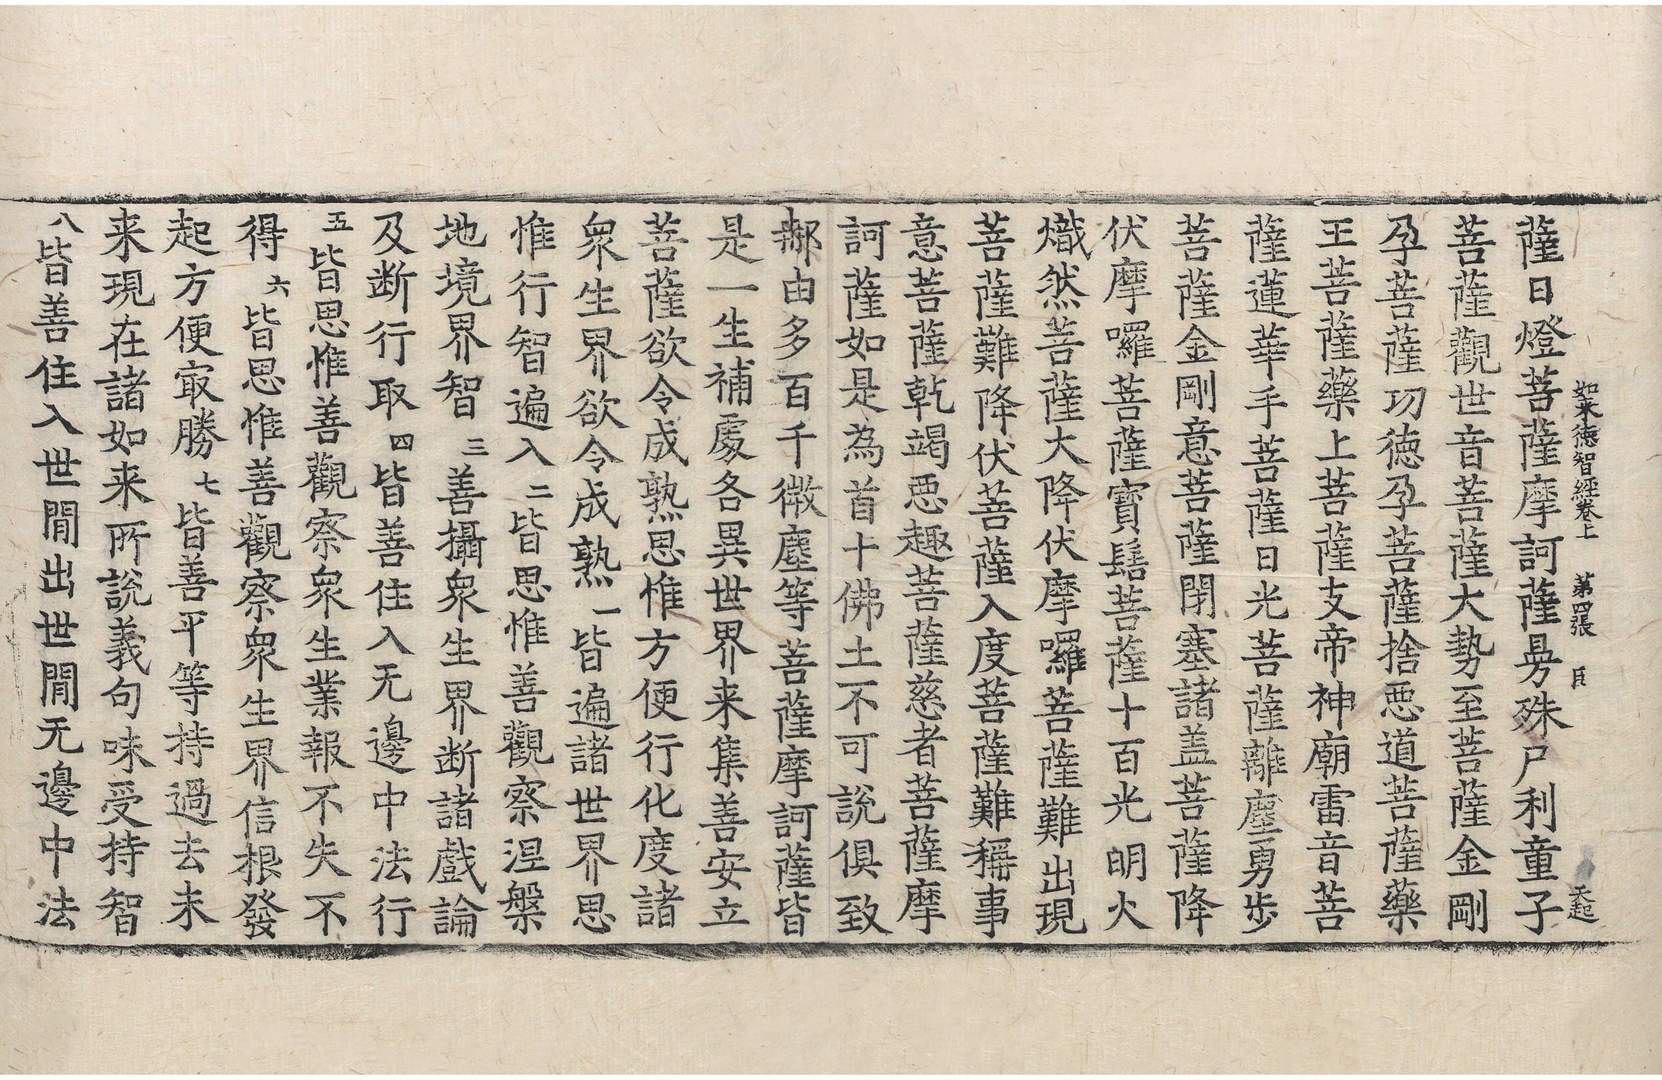 如来德智經卷上 第四張 臣 天起
薩日燈菩薩摩訶薩㬰殊尸利童子
菩薩觀世音菩薩大勢至菩薩金剛
孕菩薩功德孕菩薩捨惡道菩薩藥
王菩薩藥上菩薩攴帝神廟雷音菩
薩蓮華手菩薩日光菩薩離塵勇步
菩薩金剛意菩薩閉塞諸盖菩薩降
伏摩囉菩薩寶髻菩薩十百光明火
熾然菩薩大降伏摩囉菩薩難出現
菩薩難降伏菩薩入度菩薩難稱事
意菩薩乾竭惡趣菩薩慈者菩薩摩
訶薩如是為首十佛土不可說俱致
𨚗由多百千微塵等菩薩摩訶薩皆
是一生補處各異世界来集善安立
菩薩欲令成熟思惟方便行化度諸
衆生界欲令成熟一皆遍諸世界思
惟行智遍入二皆思惟善觀察涅槃
地境界智三善攝衆生界断諸戲論
及断行取四皆善住入无邊中法行
五皆思惟善觀察衆生業報不失不
得六皆思惟善觀察衆生界信根發
起方便㝡勝七皆善平等持過去未
来現在諸如来所說義句味受持智
八皆善住入世閒出世閒无邊中法